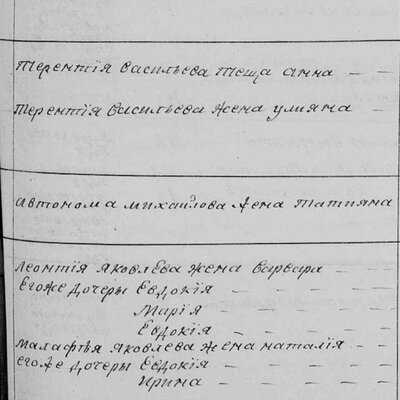 Терентія васильева теща анна
Терентія васильева жена улияна
автонома михаилова жена татияна
Леонтія яковлева жена варвара
Егоже дочеры Евдокія
Марія
Евдокія
Малафѣя яковлева жена наталія
егоже дочеры Евдокія
Ирина